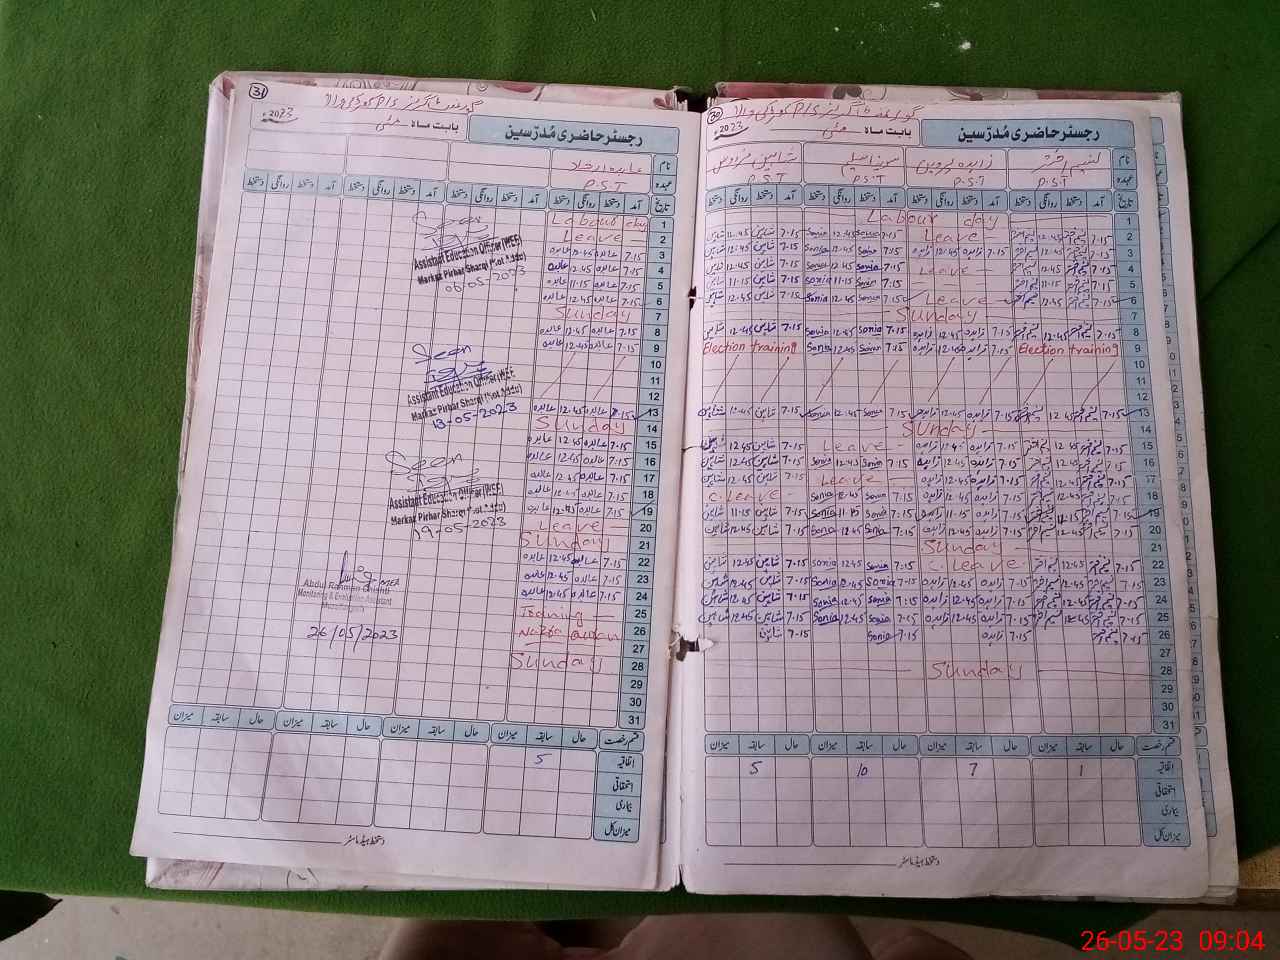 31
گورنمنٹ گرلز P/S کوڑکی والا
2023
بابت ماہ مئی
رجسٹر حاضری مُدرّسین
نام
عہدہ P.S.T
تاریخ آمد دستخط روانگی دستخط آمد دستخط روانگی دستخط آمد دستخط روانگی دستخط آمد دستخط روانگی دستخط
1 Labour day
2 Leave
3 7.15 عابدہ 12.45 عابدہ
4 7.15 عابدہ 12.45 عابدہ
5 7.15 عابدہ 11.15 عابدہ
6 7.15 عابدہ 12.45 عابدہ
7 Sunday
8 7.15 عابدہ 12.45 عابدہ
9 7.15 عابدہ 12.45 عابدہ
10
11
12
13 7.15 عابدہ 12.45 عابدہ
14 Sunday
15 7.15 عابدہ 12.45 عابدہ
16 7.15 عابدہ 12.45 عابدہ
17 7.15 عابدہ 12.45 عابدہ
18 7.15 عابدہ 12.45 عابدہ
19 7.15 عابدہ
20 Leave
21 Sunday
22 7.15 عابدہ 12.45 عابدہ
23 7.15 عابدہ 12.45 عابدہ
24 7.15 عابدہ 12.45 عابدہ
25 Training
26
27
28 Sunday
29
30
31
Seen
Assistant Education Officer (WEE)
Markaz Pirhar Sharqi (Kot Addu)
06-05-2023
Seen
Assistant Education Officer (WEE)
Markaz Pirhar Sharqi (Kot Addu)
13-05-2023
Seen
Assistant Education Officer (WEE)
Markaz Pirhar Sharqi (Kot Addu)
19-05-2023
MEA
Abdul Rahman Chishti
Monitoring & Evaluation Assistant
26/05/2023
قسم رخصت حال سابقہ میزان حال سابقہ میزان حال سابقہ میزان حال سابقہ میزان
اتفاقیہ 5
استحقاقی
بیماری
میزان کل
دستخط ہیڈ ماسٹر
30
گورنمنٹ گرلز P/S کوڑکی والا
2023
بابت ماہ مئی
رجسٹر حاضری مُدرّسین
نام زاہدہ پروین
عہدہ P.S.T P.S.T P.S.T P.S.T
تاریخ آمد دستخط روانگی دستخط آمد دستخط روانگی دستخط آمد دستخط روانگی دستخط آمد دستخط روانگی دستخط
1 Labour day
2 7.15 12.45 Leave 7.15 Sonia 12.45 Sonia 7.15 شاہین 12.45 شاہین
3 7.15 12.45 7.15 زاہدہ 12.45 زاہدہ 7.15 Sonia 12.45 Sonia 7.15 شاہین 12.45 شاہین
4 7.15 12.45 Leave 7.15 Sonia 12.45 Sonia 7.15 شاہین 12.45 شاہین
5 7.15 11.15 7.15 Sonia 11.15 Sonia 7.15 شاہین 11.15 شاہین
6 7.15 12.45 Leave 7.15 Sonia 12.45 Sonia 7.15 شاہین 12.45 شاہین
7 Sunday
8 7.15 12.45 7.15 زاہدہ 12.45 زاہدہ 7.15 Sonia 12.45 Sonia 7.15 شاہین 12.45 شاہین
9 Election training 7.15 زاہدہ 12.45 زاہدہ 7.15 Sonia 12.45 Sonia Election training
10
11
12
13 7.15 12.45 7.15 زاہدہ 12.45 زاہدہ 7.15 Sonia 12.45 Sonia 7.15 شاہین 12.45 شاہین
14 Sunday
15 7.15 12.45 7.15 زاہدہ زاہدہ Leave 7.15 شاہین 12.45 شاہین
16 7.15 12.45 7.15 زاہدہ 12.45 زاہدہ 7.15 Sonia 12.45 Sonia 7.15 شاہین 12.45 شاہین
17 7.15 12.45 7.15 زاہدہ 12.45 زاہدہ Leave 7.15 شاہین 12.45 شاہین
18 7.15 12.45 7.15 زاہدہ 12.45 زاہدہ 7.15 Sonia 12.45 Sonia C.Leave
19 7.15 11.15 7.15 زاہدہ 11.15 زاہدہ 7.15 Sonia 11.15 Sonia 7.15 شاہین 11.15 شاہین
20 7.15 12.45 7.15 زاہدہ 12.45 زاہدہ 7.15 Sonia 12.45 Sonia 7.15 شاہین 12.45 شاہین
21 Sunday
22 7.15 12.45 C.Leave 7.15 Sonia 12.45 Sonia 7.15 شاہین 12.45 شاہین
23 7.15 12.45 7.15 زاہدہ 12.45 زاہدہ 7.15 Sonia 12.45 Sonia 7.15 شاہین 12.45 شاہین
24 7.15 12.45 7.15 زاہدہ 12.45 زاہدہ 7.15 Sonia 12.45 Sonia 7.15 شاہین 12.45 شاہین
25 7.15 12.45 7.15 زاہدہ 12.45 زاہدہ 7.15 Sonia 12.45 Sonia 7.15 شاہین 12.45 شاہین
26 7.15 7.15 زاہدہ 7.15 Sonia 7.15 شاہین
27
28 Sunday
29
30
31
قسم رخصت حال سابقہ میزان حال سابقہ میزان حال سابقہ میزان حال سابقہ میزان
اتفاقیہ 1 7 10 5
استحقاقی
بیماری
میزان کل
دستخط ہیڈ ماسٹر
26-05-23 09:04